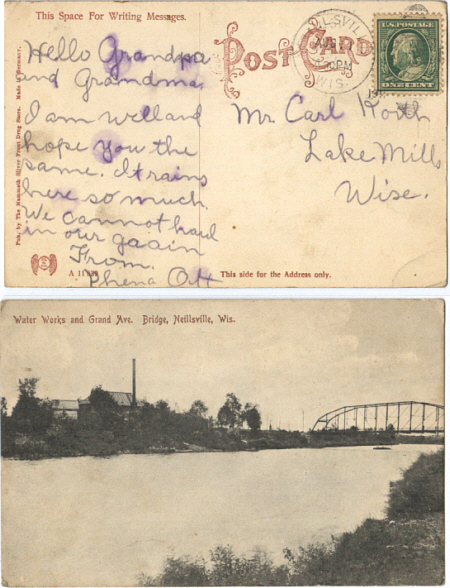 This Space For Writing Messages.
POST CARD
U.S. POSTAGE
ONE CENT
WIS.
Hello Grandpa
and Grandma
I am well and
hope you the
same. It rains
here so much.
We cannot haul
in our gaain
From.
Phena Ott
Mr. Carl
Lake Mills
Wisc.
Pub. by The Mammoth Silver Front Drug Store. Made in Germany.
This side for the Address only.
Water Works and Grand Ave. Bridge, Neillsville, Wis.